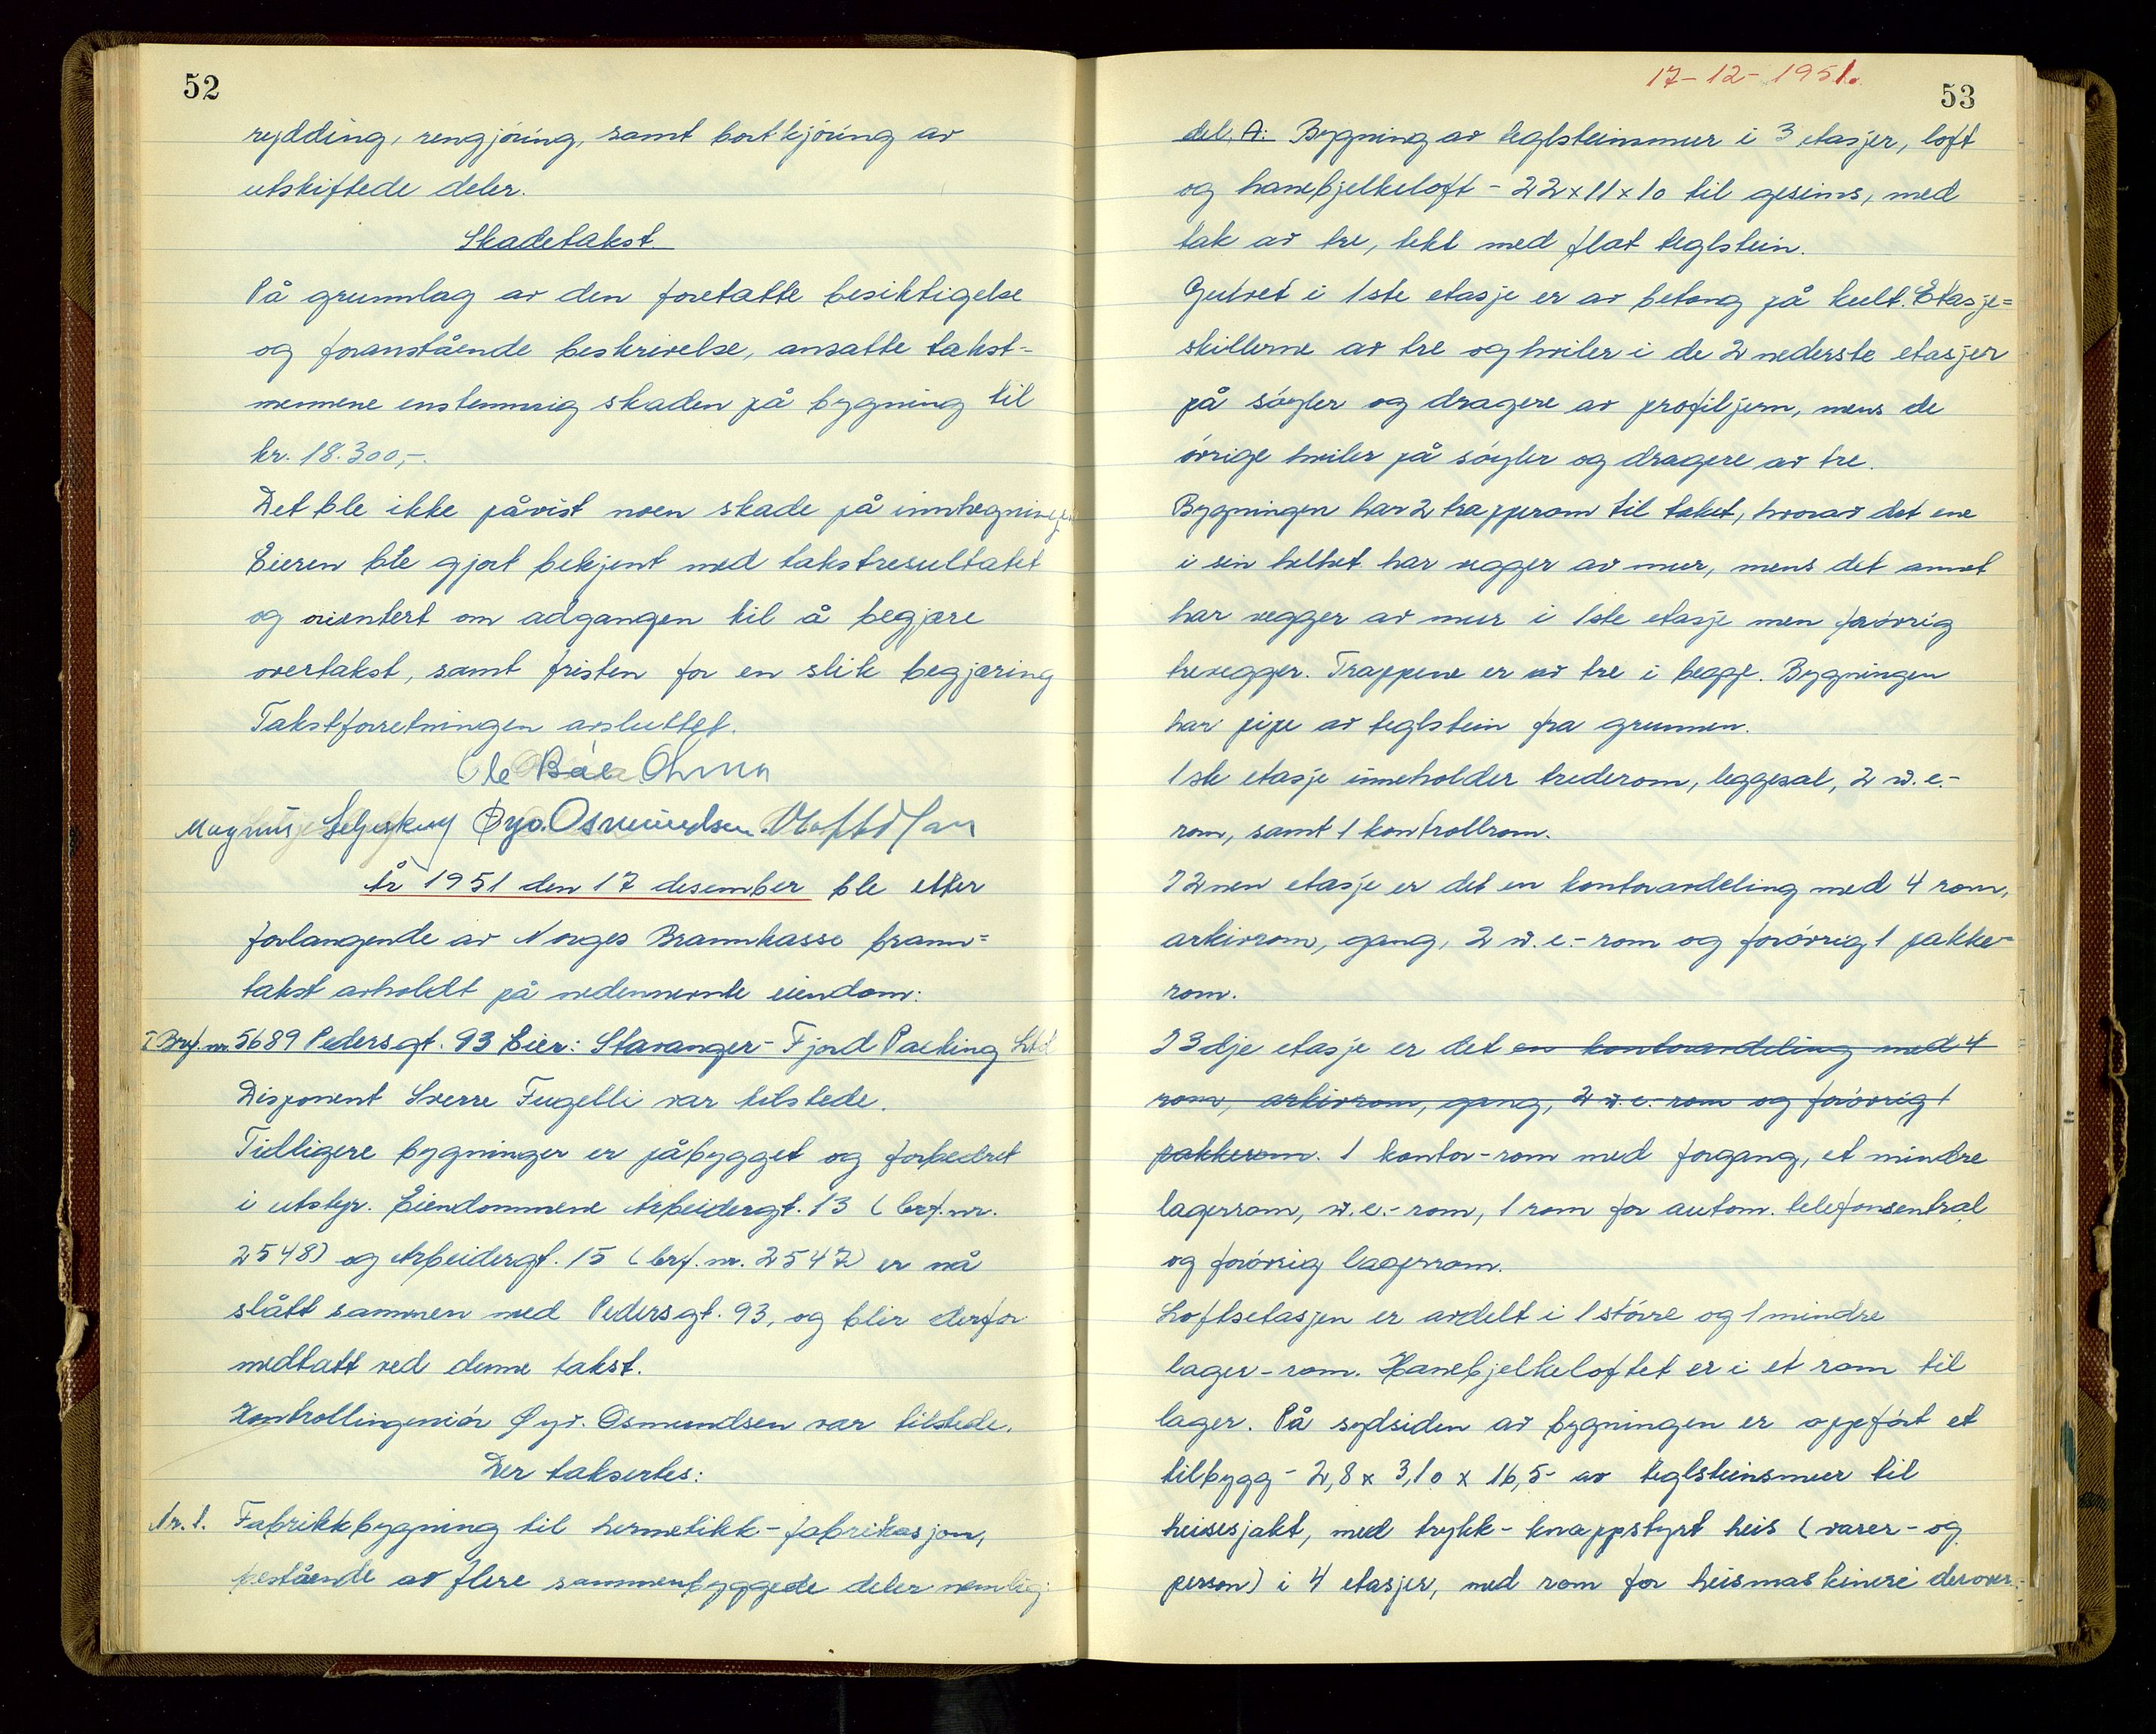 52
rydding, rengjöring, samt bortkjöring av
utskiftede deler.
Skadetakst
På grunnlag av den foretatte besiktigelse
og foranstående beskrivelse, ansatte takst-
mennene enstemmig skaden på bygning til
kr. 18.300,-.
Det ble ikke påvist noen skade på innhegningen
Eieren ble gjort bekjent med takstresultatet
og orientert om adgangen til å begjære
overtakst, samt fristen for en slik begjæring
Takstforretningen avsluttet.
Ole
Magnus Øyv. Osmundsen
År 1951 den 17 desember ble etter
forlangende av Norges Brannkasse brann=
takst avholdt på nedennevnte eiendom:
Brf. nr. 5689 Pedersgt. 93 Eier: Stavanger-Fjord Packing Ltd
Disponent Sverre Fugelli var tilstede.
Tidligere bygninger er påbygget og forbedret
i utstyr. Eiendommene Arbeidergt. 13 (brf. nr.
2548) og Arbeidergt. 15 (brf. nr. 2547) er nå
slått sammen med Pedersgt. 93, og blir derfor
medtatt ved denne takst.
Kontrollingeniör Øyv. Osmundsen var tilstede.
Der taksertes:
Nr. 1. Fabrikkbygning til hermetikk-fabrikasjon,
bestående av flere sammenbyggede deler nemlig:
17-12-1951.
53
del. A: Bygning av teglsteinsmur i 3 etasjer, loft
og hanebjelkeloft - 22x11x10 til gesims, med
tak av tre, tekt med flat teglstein.
Gulvet i 1ste etasje er av betong på kult. Etasje=
skillerne av tre og hviler i de 2 nederste etasjer
på söyler og dragere av profiljern, mens de
övrige hviler på söyler og dragere av tre.
Bygningen har 2 trapperom til taket, hvorav det ene
i sin helhet har vegger av mur, mens det annet
har vegger av mur i 1ste etasje men forövrig
trevegger. Trappene er av tre i begge. Bygningen
har pipe av teglstein fra grunnen.
1ste etasje inneholder trederom, leggesal, 2 w.c.-
rom, samt 1 kontrollrom.
I 2nen etasje er det en kontoravdeling med 4 rom,
arkivrom, gang, 2 w.c.-rom og forövrig 1 pakke-
rom.
I 3dje etasje er det en kontoravdeling med 4
rom, arkivrom, gang, 2 w.c.-rom og forövrig 1
pakkerom. 1 kontor-rom med forgang, et mindre
lagerrom, w.c.-rom, 1 rom for autom. telefonsentral
og forövrig lagerrom.
Loftsetasjen er avdelt i 1 större og 1 mindre
lager-rom. Hanebjelkeloftet er i et rom til
lager. På sydsiden av bygningen er oppfört et
tilbygg - 2,8 x 3,10 x 16,5 - av teglsteinsmur til
heisesjakt, med trykk-knappstyrt heis (varer- og
person) i 4 etasjer, med rom for heismaskineri derover.